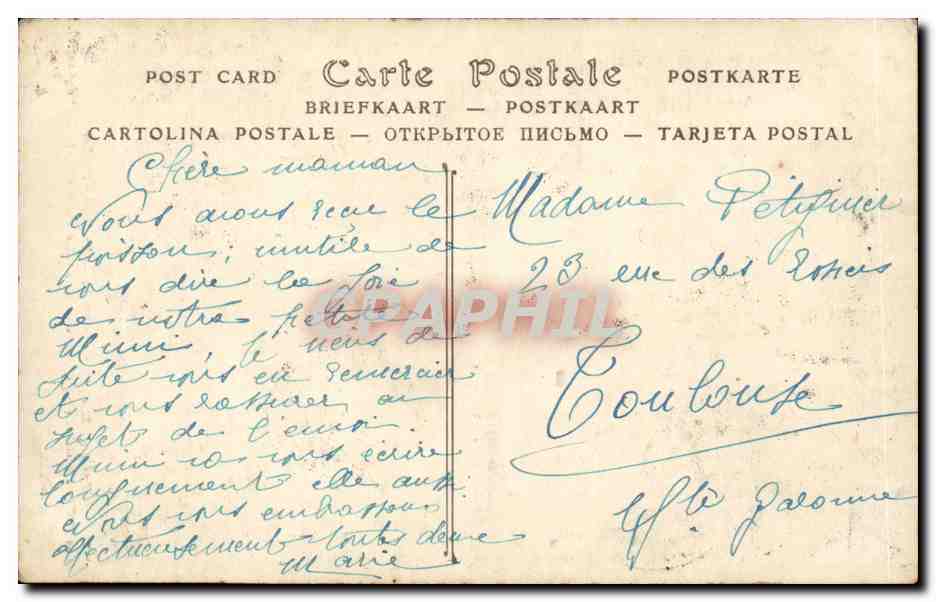 POST CARD Carte Postale POSTKARTE
BRIEFKAART — POSTKAART
CARTOLINA POSTALE — ОТКРЫТОЕ ПИСЬМО — TARJETA POSTAL
Chère maman
Nous avons reçu le
poisson; inutile de
vous dire la joie
de notre petite
Mimi, je viens de
suite vous en remercier
et vous rassurer au
sujet de l'envoi.
Mimi va vous écrire
longuement elle aussi
Nous vous embrassons
affectueusement toutes deux
Marie
Madame
23 rue des
Toulouse
Hte Garonne
APHIL